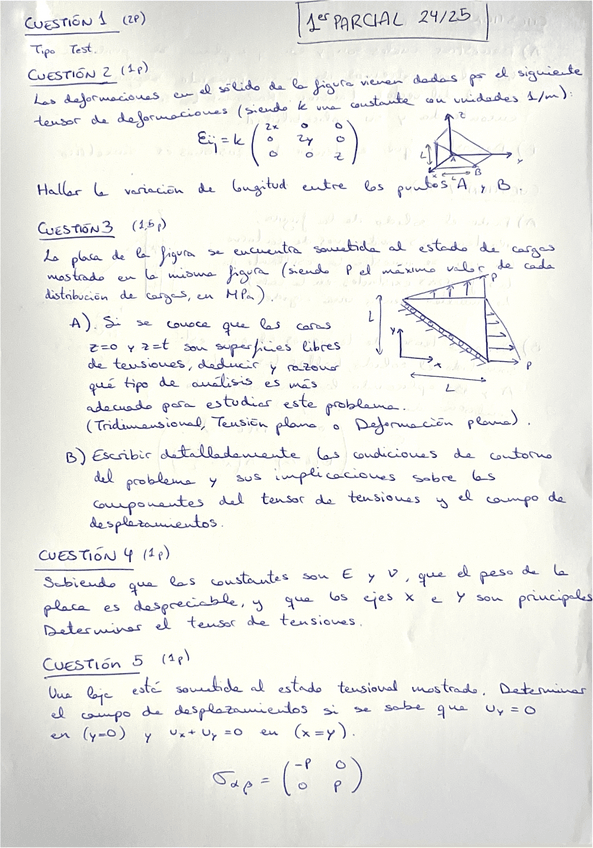 1er PARCIAL 24/25
CUESTIÓN 1 (2p)
Tipo Test.
CUESTIÓN 2 (1p)
Las deformaciones en el sólido de la figura vienen dadas por el siguiente
tensor de deformaciones (siendo k una constante con unidades 1/m):
Eij = k ( 2x 0 0
0 2y 0
0 0 z )
z
L
A
B
x
L
y
Hallar la variación de longitud entre los puntos A y B.
CUESTIÓN 3 (1,5p)
La placa de la figura se encuentra sometida al estado de cargas
mostrado en la misma figura (siendo P el máximo valor de cada
distribución de cargas, en MPa)
A). Si se conoce que las caras
z=0 y z=t son superficies libres
de tensiones, deducir y razonar
qué tipo de análisis es más
adecuado para estudiar este problema.
(Tridimensional, Tensión plana o Deformación plana).
P
L
y
x
P
L
B) Escribir detalladamente las condiciones de contorno
del problema y sus implicaciones sobre las
componentes del tensor de tensiones y el campo de
desplazamientos.
CUESTIÓN 4 (1p)
Sabiendo que las constantes son E y ν, que el peso de la
placa es despreciable, y que los ejes X e Y son principales
Determinar el tensor de tensiones.
CUESTIÓN 5 (1p)
Una laja está sometida al estado tensional mostrado. Determinar
el campo de desplazamientos si se sabe que Uy = 0
en (y=0) y Ux + Uy = 0 en (x=y).
σαβ = ( -P 0
0 P )